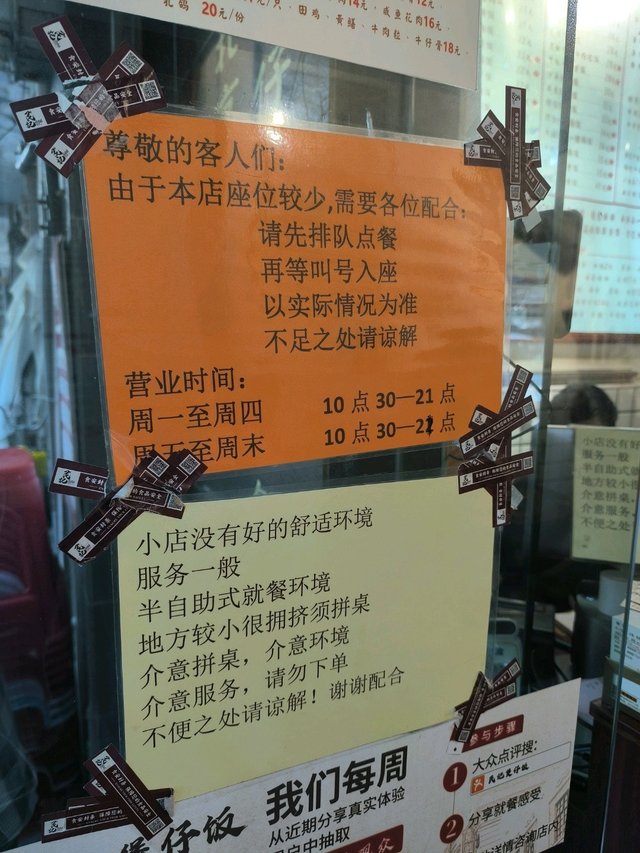 20元/份
田鸡，黄鳝，牛肉粒，牛仔骨18元，
咸鱼花肉16元，
尊敬的客人们：
由于本店座位较少,需要各位配合：
请先排队点餐
再等叫号入座
以实际情况为准
不足之处请谅解
营业时间：
周一至周四 10 点 30—21 点
周五至周末 10 点 30—21 点
小店没有好的舒适环境
服务一般
半自助式就餐环境
地方较小很拥挤须拼桌
介意拼桌，介意环境
介意服务，请勿下单
不便之处请谅解！谢谢配合
小店没有好
服务一般
半自助式就
地方较小
介意拼桌
介意服务
不便之处
煲仔饭
我们每周
从近期分享真实体验
户中抽取
参与步骤
1 大众点评搜：
民记煲仔饭
2 分享就餐感受
详情咨询店内